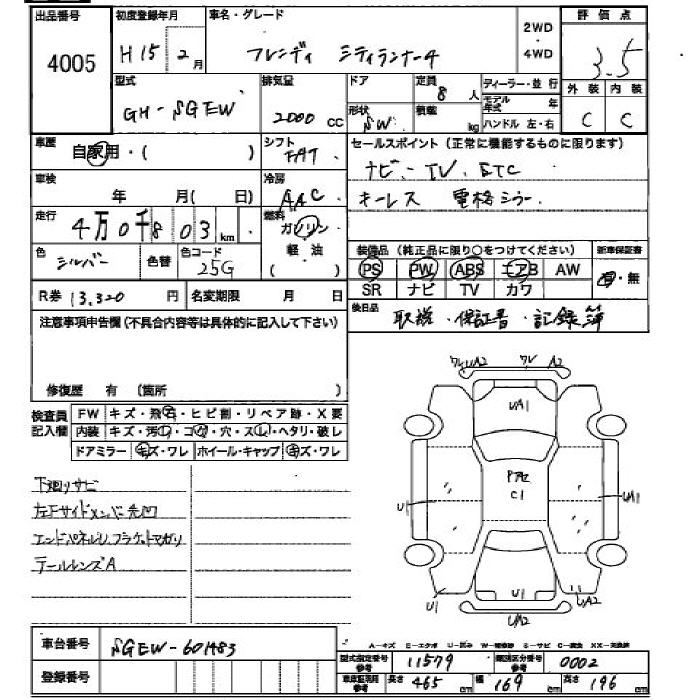 出品番号 初度登録年月 車名・グレード 評価点
4005 H15 2月 フレンディ シティランナー4 2WD・4WD 3.5
型式 排気量 ドア 定員 8人 ディーラー・並行 外装 内装
GH-SGEW 2000 cc 形状 SW 積載 kg モデル年式 年 ハンドル 左・右 C C
車歴 自家用・( ) シフト FAT セールスポイント (正常に機能するものに限ります)
車検 年 月( 日) 冷房 AAC ナビ・TV. ETC
キーレス 電格ミラー
走行 4万0千803km 燃料 ガソリン・軽油 ( )
色 シルバー 色替 色コード 25G 装備品 (純正品に限り○をつけてください) 新車保証書
PS PW ABS エアB AW 有・無
R券 13,320円 名変期限 月 日 SR ナビ TV カワ
注意事項申告欄(不具合内容等は具体的に記入して下さい) 後日品 取説・保証書・記録簿
修復歴 有 (箇所 )
ワレ UA2 ワレ A2
UA1
検査員記入欄 FW キズ・飛石・ヒビ割・リペア跡・X要
内装 キズ・汚れ・コゲ・穴・スレ・ヘタリ・破レ
ドアミラー キズ・ワレ ホイール・キャップ キズ・ワレ
C1
U1 UA1
下廻りサビ
左Fサイドメンバー先凹
エンドパネルU,ブラケットマガリ
テールレンズA
U1 U1 UA2
UA2
車台番号 SGEW-601483
A-キズ E-エクボ U-凹み W-補修跡 S-サビ C-腐食 XX-交換済
型式指定番号参考 11579 類別区分番号参考 0002
登録番号 車庫証明用参考 長さ 465cm 幅 169cm 高さ 196cm